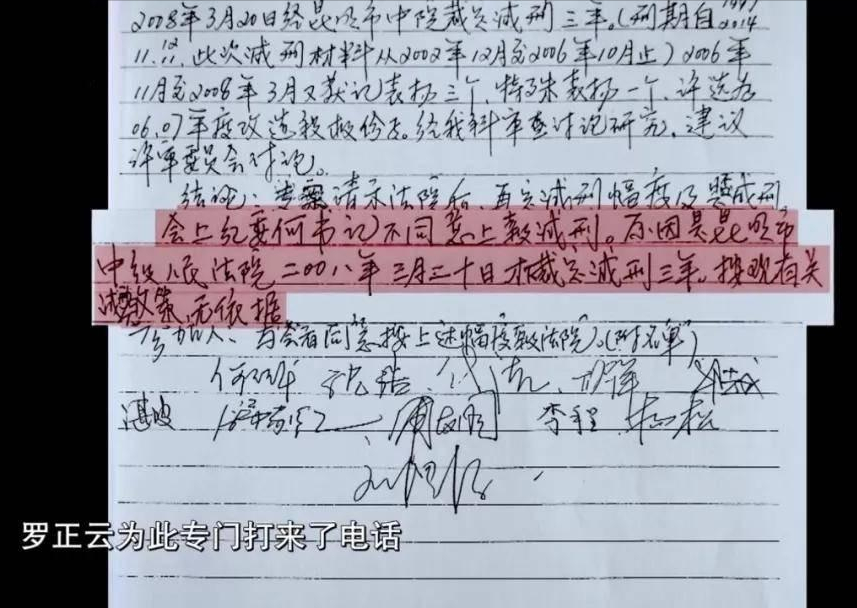 2008年3月20日经昆明市中院裁定减刑三年。(刑期自1997
2014
11.12
11.11,此次减刑材料从2002年12月至2006年10月止)2006年
11月至2008年3月又获记表扬三个,特殊表扬一个,评选为
06.07年度改造积极份子。经我科审查讨论研究,建议
评审委员会讨论。
结论:专案请示法院后,再定减刑幅度及呈减刑。
会上纪委何书记不同意上报减刑。原因是昆明市
中级人民法院二00八年三月二十日才裁定减刑三年。按现有关
减刑政策,无依据
参加人、与会者同意按上述幅度报法院。(附名单)
李程
罗正云为此专门打来了电话